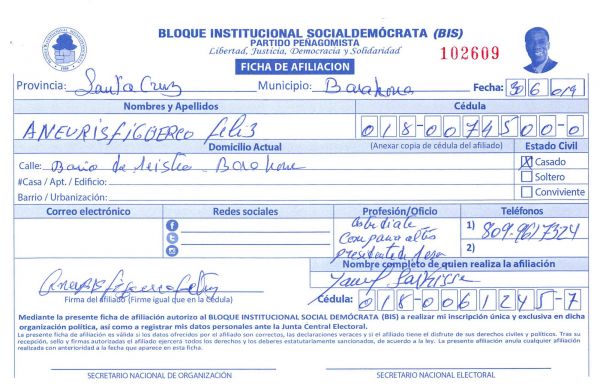 BLOQUE INSTITUCIONAL SOCIALDEMÓCRATA (BIS)
PARTIDO PEÑAGOMISTA
Libertad, Justicia, Democracia y Solidaridad
102609
FICHA DE AFILIACION
Provincia: Santa Cruz Municipio: Barahona Fecha: 30 6 019
Nombres y Apellidos Cédula
ANEURIS FIGUEREO feliz 018-0074500-0
Domicilio Actual (Anexar copia de cédula del afiliado) Estado Civil
Calle: Barahona X Casado
#Casa / Apt. / Edificio: Soltero
Barrio / Urbanización: Conviviente
Correo electrónico Redes sociales Profesión/Oficio Teléfonos
1) 809-9617324
2)
presidente de
Nombre completo de quien realiza la afiliación
Firma del afiliado (Firme igual que en la Cédula)
Cédula: 018-0061245-7
Mediante la presente ficha de afiliación autorizo al BLOQUE INSTITUCIONAL SOCIAL DEMÓCRATA (BIS) a realizar mi inscripción única y exclusiva en dicha
organización política, así como a registrar mis datos personales ante la Junta Central Electoral.
La presente ficha de afiliación es válida si los datos ofrecidos por el afiliado son correctos, las declaraciones veraces y si el afiliado tiene el disfrute de sus derechos civiles y políticos. Tras su
recepción, sello y firmas autorizadas el afiliado ejercerá todos los derechos y los deberes estatutariamente sancionados, de acuerdo a la ley. La presente afiliación anula cualquier afiliación
realizada con anterioridad a la fecha que aparece en esta ficha.
SECRETARIO NACIONAL DE ORGANIZACIÓN SECRETARIO NACIONAL ELECTORAL